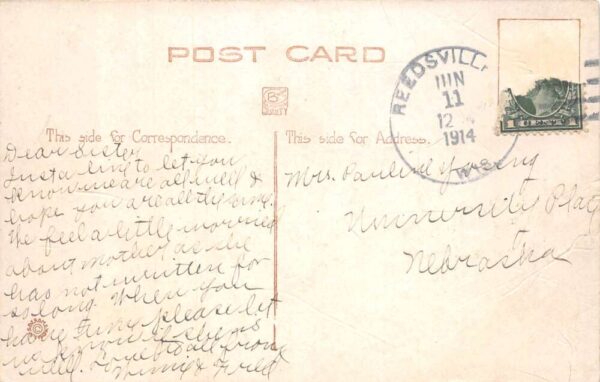 POST CARD
This side for Correspondence.
This side for Address.
REEDSVILL
JUN
11
12
1914
WIS.
1 CENT 1
Dear Sister
Just a line to let you
know we are all well &
hope you are all the same.
We feel a little worried
about mother as she
has not written for
so long. When you
have time please let
us know if she is
well. Love to all from
& Fred.
Mrs. Pauline
University Place
Nebraska